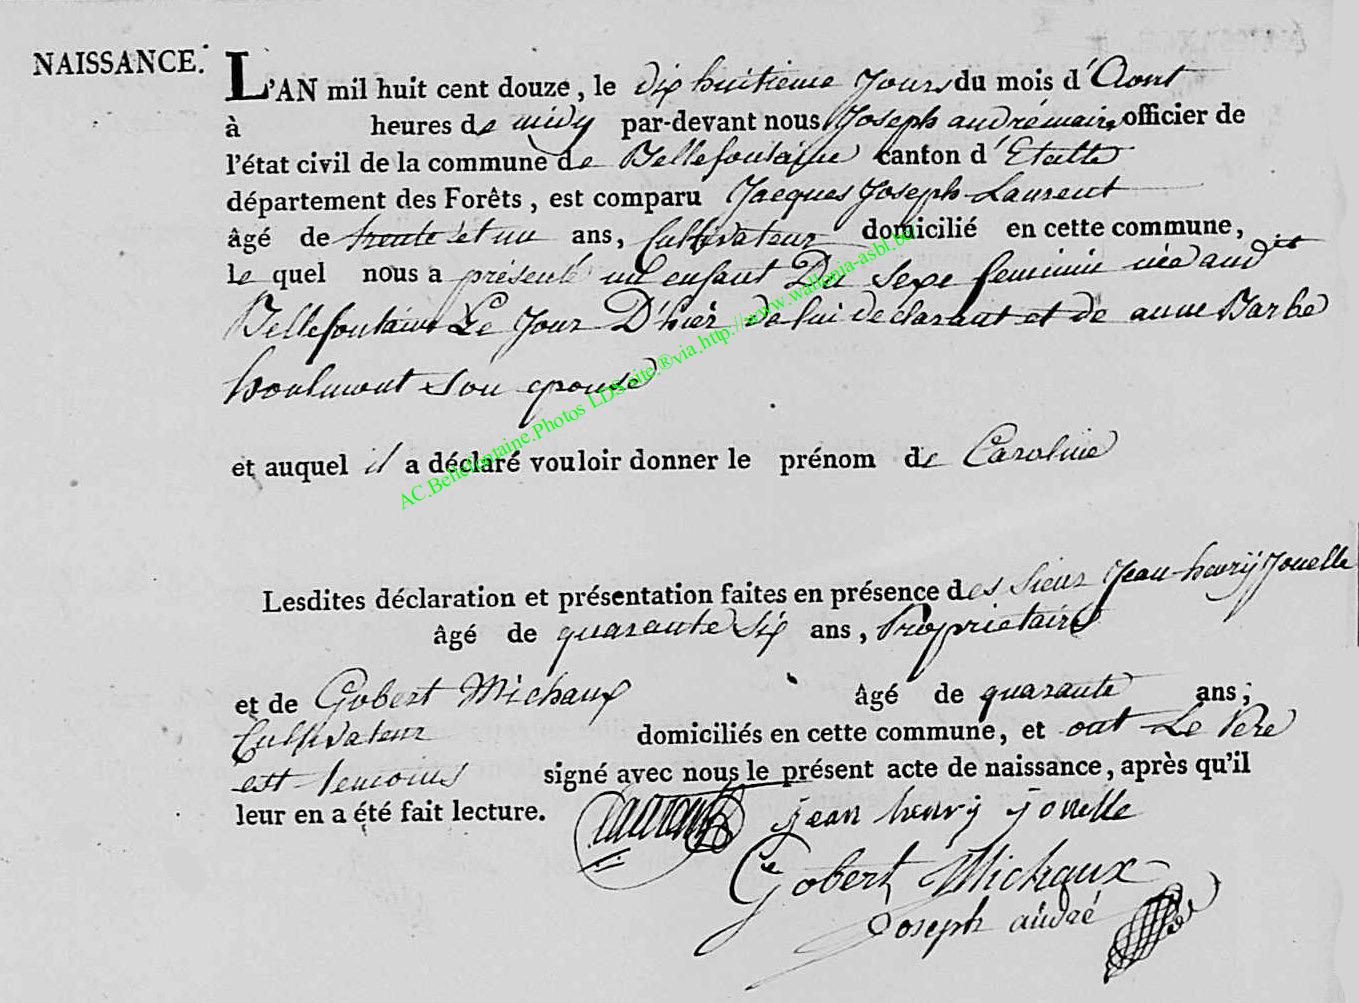 NAISSANCE.
L'AN mil huit cent douze, le dix huitieme Jours du mois d'Aout
à heures de midy par-devant nous Joseph andré maire officier de
l'état civil de la commune de Bellefontaine canton d'Etalle
département des Forêts, est comparu Jacques Joseph Laurent
âgé de trente et un ans, Cultivateur domicilié en cette commune,
le quel nous a présenté un enfant Du Sexe feminin née audit
Bellefontaine Le Jour D'hier de lui declarant et de anne Barbe
son epouse
et auquel il a déclaré vouloir donner le prénom de Caroline
Lesdites déclaration et présentation faites en présence des Sieur Jean-henrÿ Jouelle
âgé de quarante Six ans, Proprietaire
et de Gobert Michaux âgé de quarante ans;
Cultivateur domiciliés en cette commune, et ont Le Pere
est temoins signé avec nous le présent acte de naissance, après qu'il
leur en a été fait lecture. Laurent jean henry jouelle
Gobert Michaux
Joseph andré
AC.Bellefontaine.Photos LDS site.®via.http://www.wallonia-asbl.be